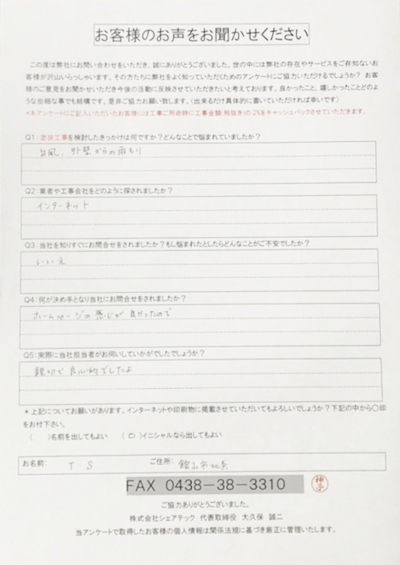 お客様のお声をお聞かせください
この度は弊社にお問い合わせをいただき、誠にありがとうございました。世の中には弊社の存在やサービスをご存知ないお
客様が沢山いらっしゃいます。その方たちに弊社をよく知っていただくためのアンケートにご協力いただけるでしょうか? お客
様のご意見をお聞かせいただき今後の活動に反映させていただきたいと考えております。良かったこと、嬉しかったことどのよ
うな些細な事でも結構です。是非ご協力お願い致します。(出来るだけ具体的に書いていただければ幸いです)
*本アンケートにご記入いただいたお客様には工事ご用命時に工事金額(税抜き)の2%をキャッシュバックさせていただきます。
Q1:塗装工事を検討したきっかけは何ですか?どんなことで悩まれていましたか?
台風、外壁からの雨もり
Q2:業者や工事会社をどのように探されましたか?
インターネット
Q3:当社を知りすぐにお問合せをされましたか?もし悩まれたとしたらどんなことがご不安でしたか?
いいえ
Q4:何が決め手となり当社にお問合せをされましたか?
ホームページの感じが良かったので
Q5:実際に当社担当者がお伺いしていかがでしたでしょうか?
親切で良心的でしたよ
*上記についてお願いがあります。インターネットや印刷物に掲載させていただいてもよろしいでしょうか?下記の中から〇印
をお付下さい。
( )名前を出してもよい (○)イニシャルなら出してもよい
お名前: T.S ご住所: 館山市
FAX 0438-38-3310
ご協力ありがとうございました。
株式会社シェアテック 代表取締役 大久保 誠二
当アンケートで取得したお客様の個人情報は関係法規に基づき厳正に管理いたします。